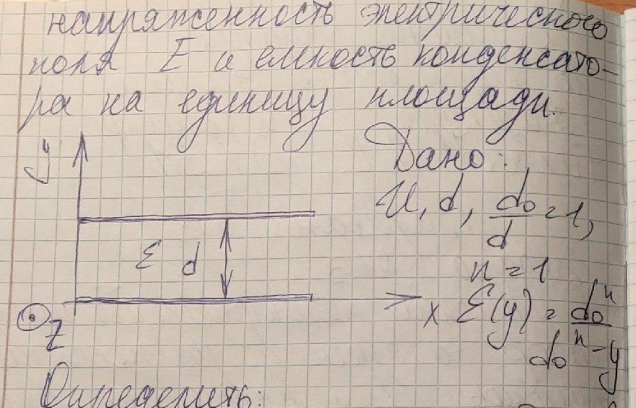 напряженность электрического
поля E и емкость конденсато-
ра на единицу площади.
y
Дано:
U, d, d₀/d = 1,
ε d
n = 1
x
ε(y) = d₀ⁿ/d₀ⁿ-y
z
Определить: